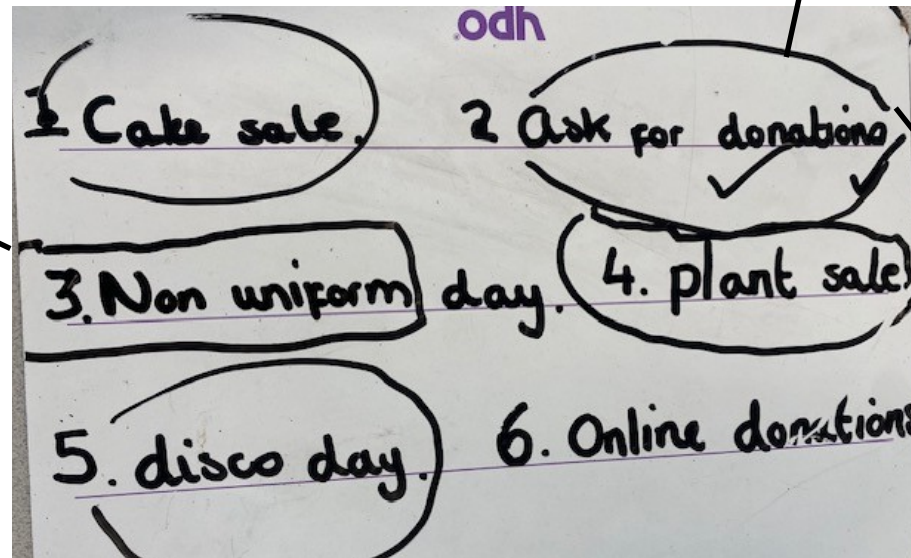 odh
1 Cake sale.
2 Ask for donations
3. Non uniform day.
4. plant sale
5. disco day.
6. Online donations